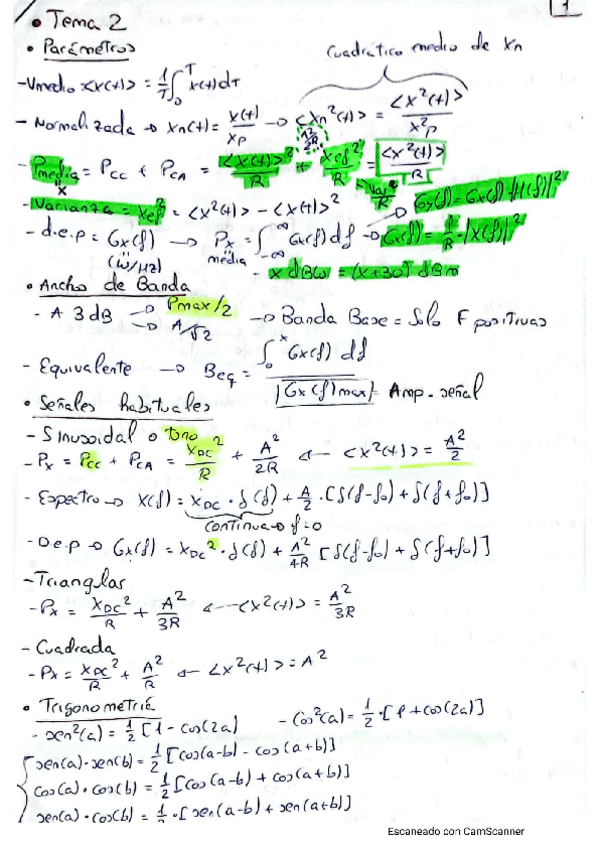 1
• Tema 2
• Parámetros
Cuadrático medio de Xn
- Vmedio <x(t)> = 1/T ∫₀ᵀ x(t)dT
- Normalizada → Xn(t) = x(t)/xp → <Xn²(t)> = <x²(t)>/x²p
- Pmedia x = Pcc + PCA = <x(t)>²/R + xef²/R = <x²(t)>/R
Gy(f) = Gx(f)·|H(f)|²
- Varianza = xef² = <x²(t)> - <x(t)>²
- d.e.p = Gx(f) → Px = ∫ Gx(f)df → Gx(f) = 1/R · |X(f)|²
(W/Hz) media
- x dBW = (x+30) dBm
• Ancho de Banda
- A 3dB → Pmax/2
→ A/√2 → Banda Base = Solo F positivas
- Equivalente → Beq = ∫₀ Gx(f) df / |Gx(f)max| Amp. señal
• Señales habituales
- Sinusoidal o tono
- Px = Pcc + PCA = XDC²/R + A²/2R ← <x²(t)> = A²/2
- Espectro → X(f) = XDC · δ(f) + A/2 · [δ(f-fo) + δ(f+fo)]
continua → f=0
- D.e.p → Gx(f) = XDC² · δ(f) + A²/4R [δ(f-fo) + δ(f+fo)]
- Triangular
- Px = XDC²/R + A²/3R ← <x²(t)> = A²/3R
- Cuadrada
- Px = XDC²/R + A²/R ← <x²(t)> = A²
• Trigonometría
- sen²(a) = 1/2 [1 - cos(2a) - Cos²(a) = 1/2 · [1 + cos(2a)]
sen(a) · sen(b) = 1/2 [cos(a-b) - cos(a+b)]
cos(a) · cos(b) = 1/2 [cos(a-b) + cos(a+b)]
sen(a) · cos(b) = 1/2 · [sen(a-b) + sen(a+b)]
Escaneado con CamScanner